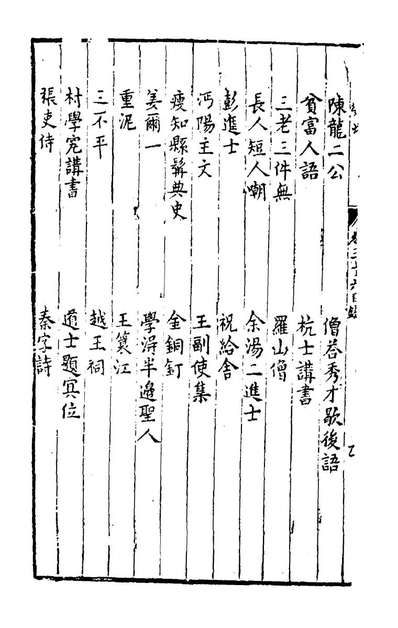 陳龍二公
僧荅秀才歇後語
貧富人語
杭士講書
三老三件無
羅山僧
長人短人嘲
余湯二進士
彭進士
祝給舍
沔陽主文
王副使集
瘦知縣鬍典史
金銅釘
姜爾一
學淂半邉聖人
重泥
王簑江
三不平
越王祠
村學究講書
道士題冥位
張吏侍
秦字詩